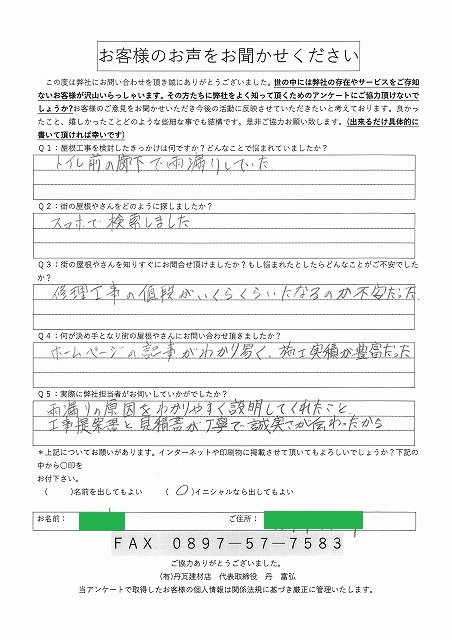 お客様のお声をお聞かせください
この度は弊社にお問い合わせを頂き誠にありがとうございました。世の中には弊社の存在やサービスをご存知
ないお客様が沢山いらっしゃいます。その方たちに弊社をよく知って頂くためのアンケートにご協力頂けないで
しょうか?お客様のご意見をお聞かせいただき今後の活動に反映させていただきたいと考えております。良かっ
たこと、嬉しかったことどのような些細な事でも結構です。是非ご協力お願い致します。(出来るだけ具体的に
書いて頂ければ幸いです)
Q1:屋根工事を検討したきっかけは何ですか?どんなことで悩まれていましたか?
トイレ前の廊下で雨漏りしていた
Q2:街の屋根やさんをどのように探しましたか?
スマホで検索しました
Q3:街の屋根やさんを知りすぐにお問合せ頂けましたか?もし悩まれたとしたらどんなことがご不安でした
か?
修理工事の値段がいくらくらいになるのか不安だった
Q4:何が決め手となり街の屋根やさんにお問い合わせ頂きましたか?
ホームページの記事がわかり易く、施工実積が豊富だった
Q5:実際に弊社担当者がお伺いしていかがでしたか?
雨漏りの原因をわかりやすく説明してくれたこと
工事提案書と見積書が丁寧で誠実さが伝わったから
*上記についてお願いがあります。インターネットや印刷物に掲載させて頂いてもよろしいでしょうか?下記の
中から〇印を
お付下さい。
( )名前を出してもよい ( 〇 )イニシャルなら出してもよい
お名前: ご住所:
FAX 0897-57-7583
ご協力ありがとうございました。
(有)丹瓦建材店 代表取締役 丹 富弘
当アンケートで取得したお客様の個人情報は関係法規に基づき厳正に管理いたします。